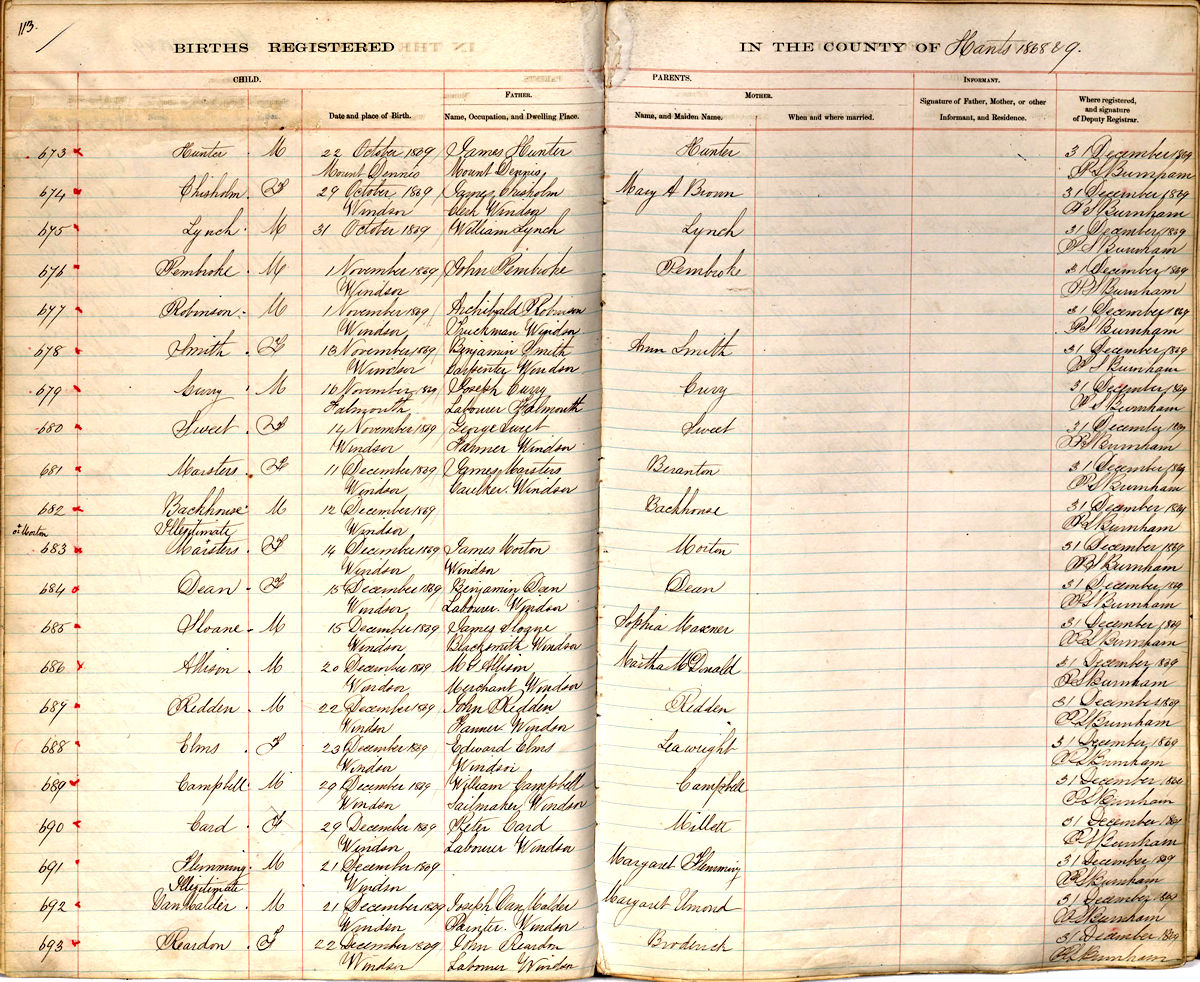 113.
BIRTHS REGISTERED IN THE COUNTY OF Hants 1868 & 9.
CHILD. PARENTS. INFORMANT.
FATHER. MOTHER.
Date and place of Birth. Name, Occupation, and Dwelling Place. Name, and Maiden Name. When and where married. Signature of Father, Mother, or other Informant, and Residence. Where registered, and signature of Deputy Registrar.
673 Hunter M 22 October 1869 James Hunter Hunter 31 December 1869
Mount Dennis Mount Dennis, P S Burnham
674 Chisholm F 29 October 1869 Chisholm Mary A Brown 31 December 1869
Windsor Clerk Windsor P S Burnham
675 Lynch M 31 October 1869 William Lynch Lynch 31 December 1869
P S Burnham
676 Pembroke M 1 November 1869 John Pembroke Pembroke 31 December 1869
Windsor P S Burnham
677 Robinson M 1 November 1869 Archibald Robinson 31 December 1869
Windsor Truckman Windsor P S Burnham
678 Smith F 13 November 1869 Benjamin Smith Ann Smith 31 December 1869
Windsor Carpenter Windsor P S Burnham
679 Curry M 16 November 1869 Joseph Curry Curry 31 December 1869
Falmouth Labourer Falmouth P S Burnham
680 Sweet F 14 November 1869 George Sweet Sweet 31 December 1869
Windsor Farmer Windsor P S Burnham
681 Marsters F 11 December 1869 James Marsters Beranton 31 December 1869
Windsor Caulker. Windsor P S Burnham
682 Backhouse M 12 December 1869 Backhouse 31 December 1869
Illegitimate Windsor P S Burnham
or Morton
683 Marsters F 14 December 1869 James Morton Morton 31 December 1869
Windsor Windsor P S Burnham
684 Dean F 15 December 1869 Benjamin Dean Dean 31 December 1869
Windsor Labourer. Windsor P S Burnham
685 Sloane M 15 December 1869 James Sloane Sophia Maxner 31 December 1869
Windsor Blacksmith Windsor P S Burnham
686 Allison M 20 December 1869 M P Allison Martha McDonald 31 December 1869
Windsor Merchant Windsor P S Burnham
687 Redden M 22 December 1869 John Redden Redden 31 December 1869
Windsor Windsor P S Burnham
688 Elms F 23 December 1869 Edward Elms Leawright 31 December 1869
Windsor Windsor P S Burnham
689 Campbell M 29 December 1869 William Campbell Campbell 31 December 1869
Windsor Sailmaker Windsor P S Burnham
690 Card F 29 December 1869 Peter Card Millett 31 December 1869
Windsor Labourer Windsor P S Burnham
691 Flemming M 21 December 1869 Margaret Flemming 31 December 1869
Illegitimate Windsor P S Burnham
692 Van Malder M 21 December 1869 Joseph Van Malder Margaret Umond 31 December 1869
Windsor Painter. Windsor P S Burnham
693 Reardon F 22 December 1869 John Reardon Broderick 31 December 1869
Windsor Labourer Windsor P S Burnham